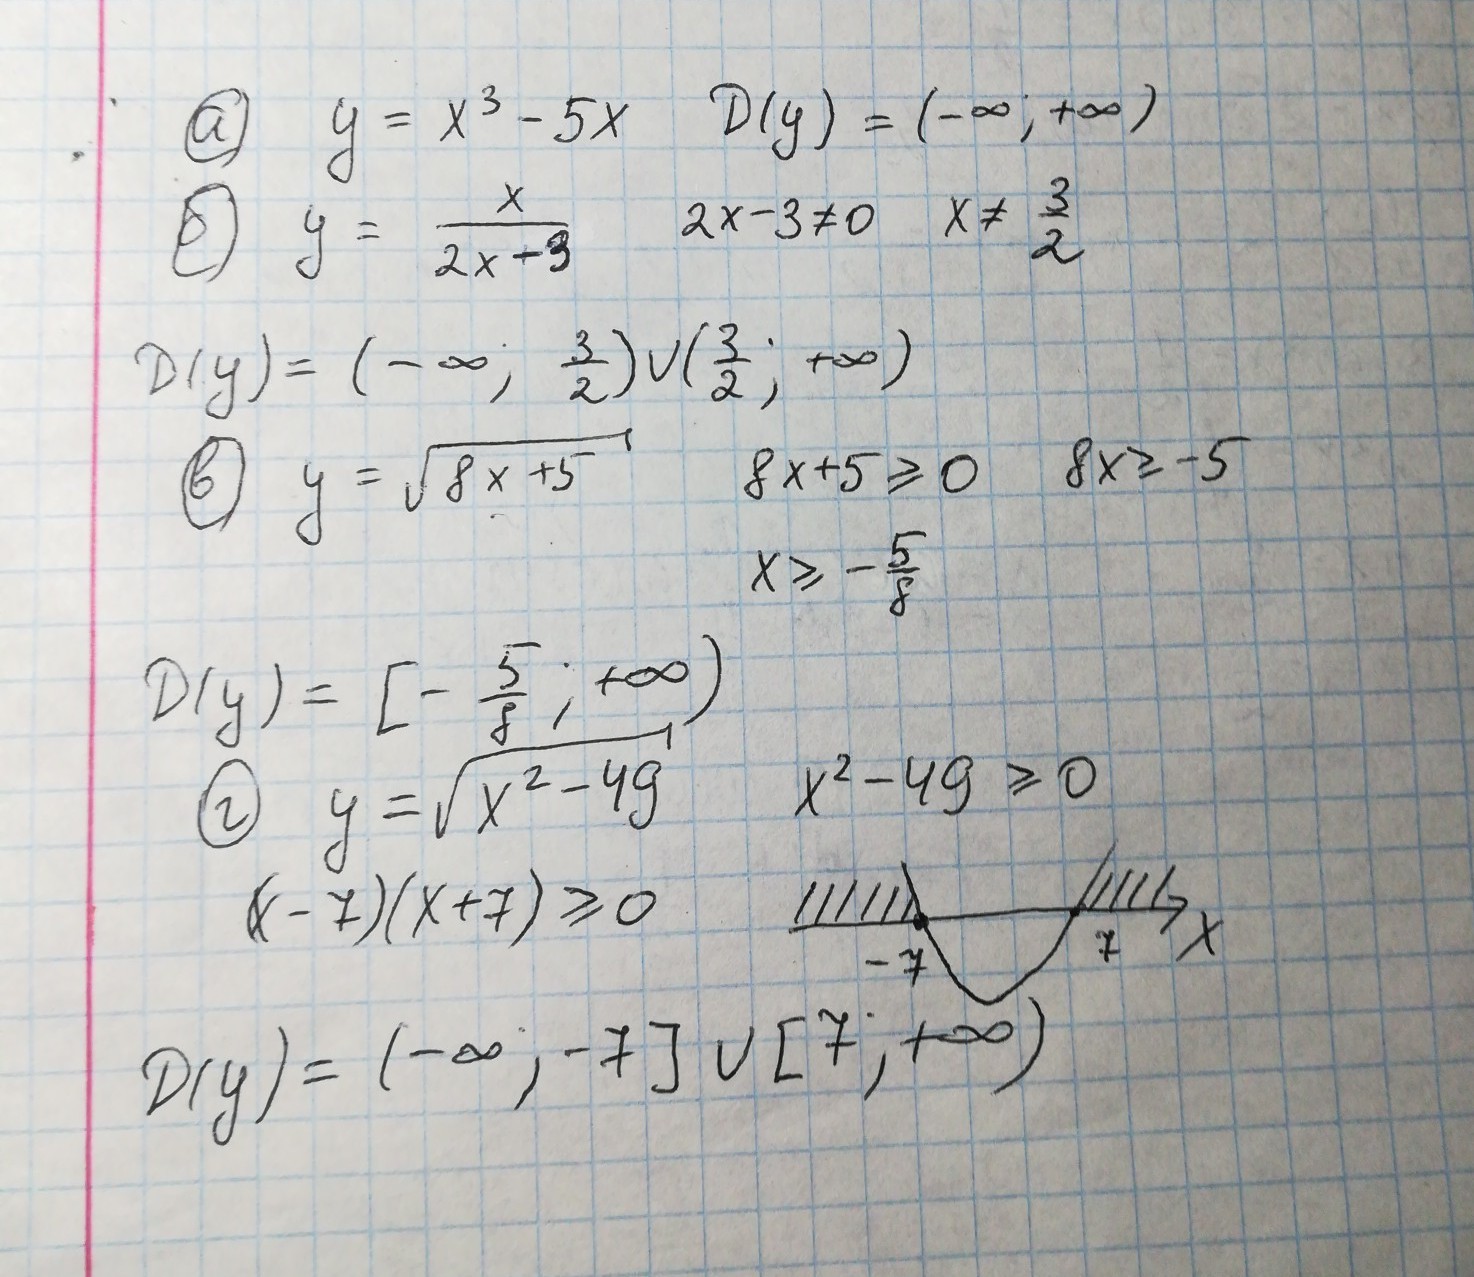 а) y = x³ - 5x D(y) = (-∞; +∞)
б) y = x/(2x+3) 2x-3≠0 x ≠ 3/2
D(y) = (-∞; 3/2)∪(3/2; +∞)
в) y = √(8x+5) 8x+5 ⩾ 0 8x ⩾ -5
x ⩾ -5/8
D(y) = [-5/8; +∞)
г) y = √(x²-49) x²-49 ⩾ 0
(x-7)(x+7) ⩾ 0
-7 7 x
D(y) = (-∞; -7] ∪ [7; +∞)